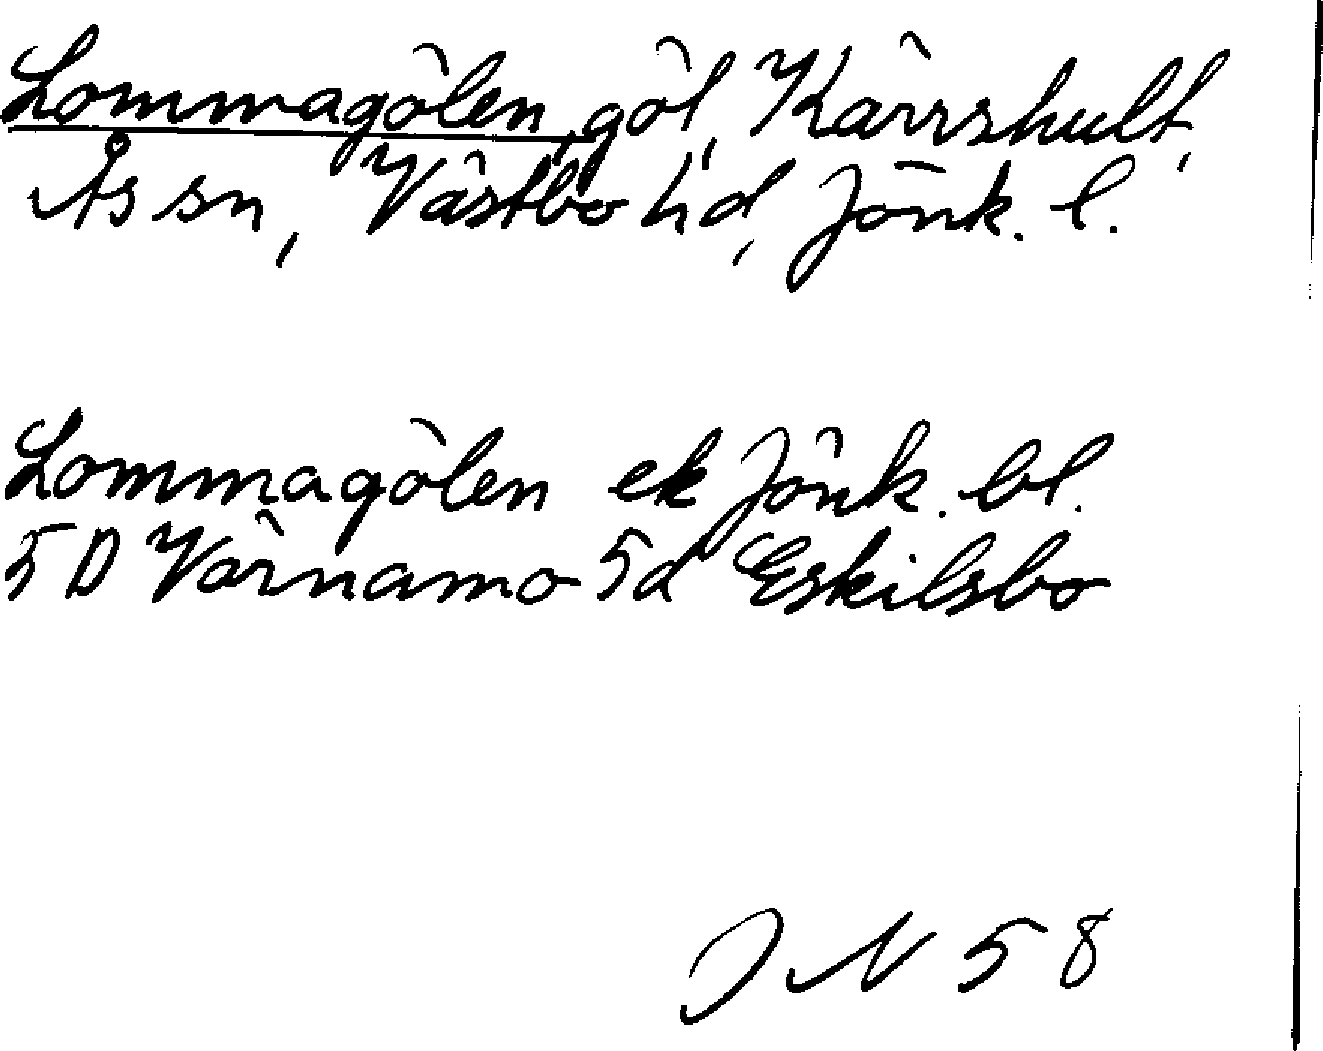 Lommagölen, göl, Kärrshult,
Ås sn, Västbo hd, Jönk. l.
Lommagölen ek Jönk. bl.
5D Värnamo 5d Eskilsbo
JN 58